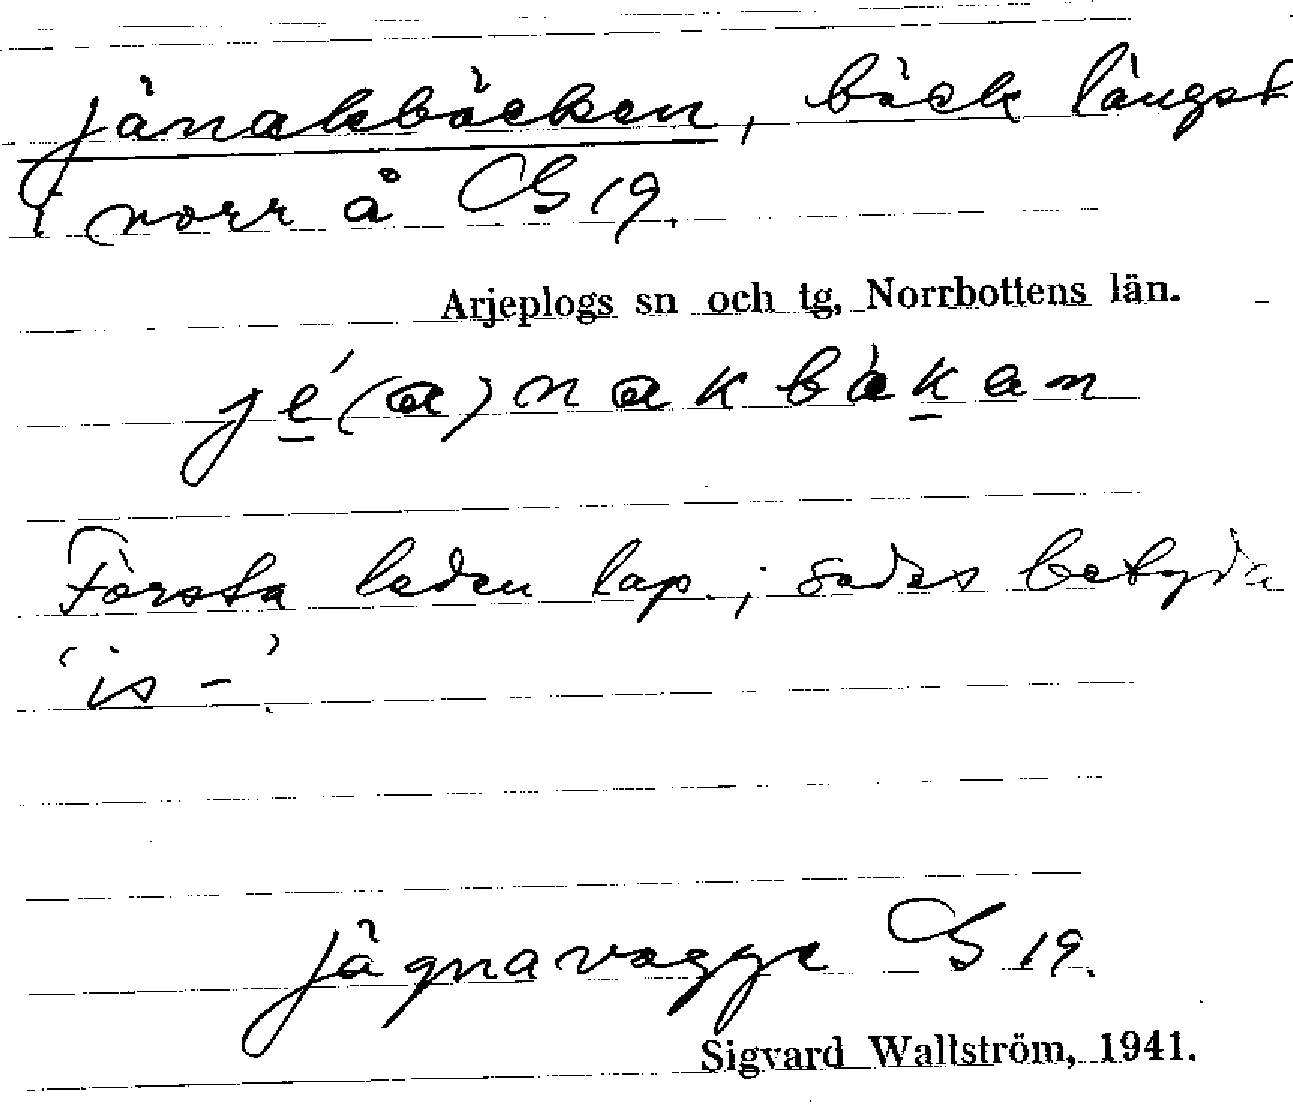 jänakbäcken, bäck längst
i norr å GS 19.
Arjeplogs sn och tg, Norrbottens län.
jé(a)nakbàkan
Första leden lap.; sades betyda
'is-'.
jägnavagge GS 19.
Sigvard Wallström, 1941.